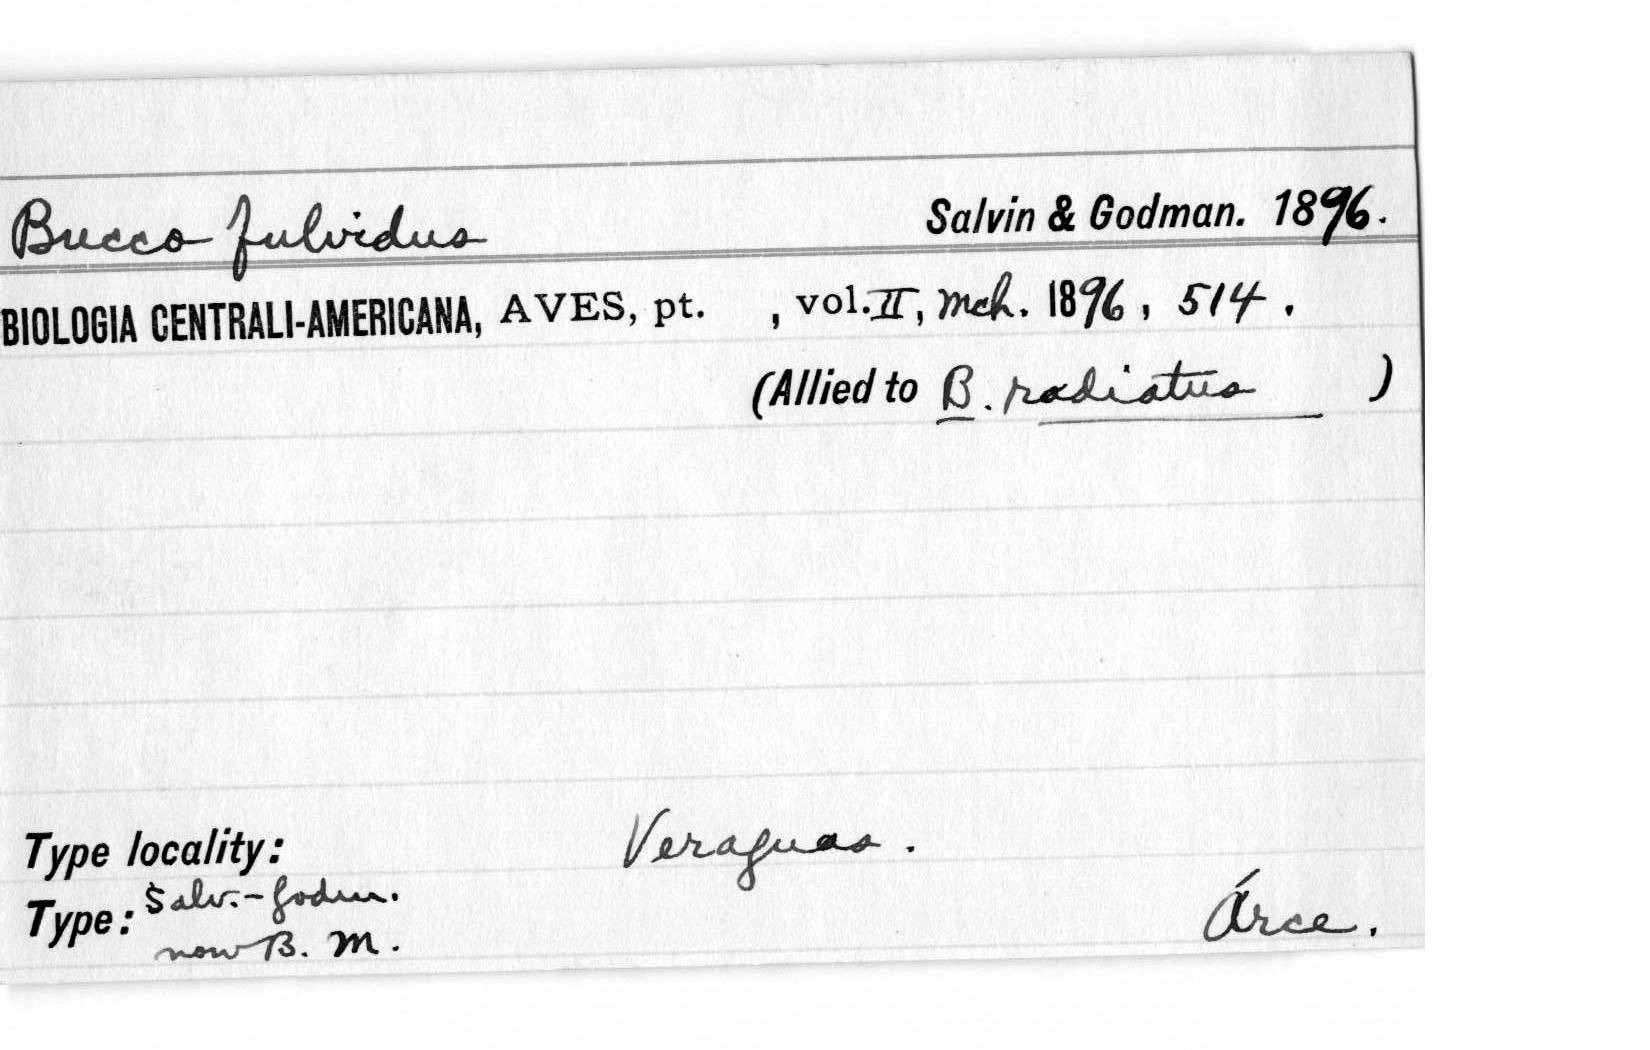 Bucco fulvidus Salvin & Godman. 1896.
BIOLOGIA CENTRALI-AMERICANA, AVES, pt. , vol. II, Mch. 1896, 514.
(Allied to B. radiatus )
Type locality: Veraguas.
Type: Salv.-Godm. Árce.
now B. M.